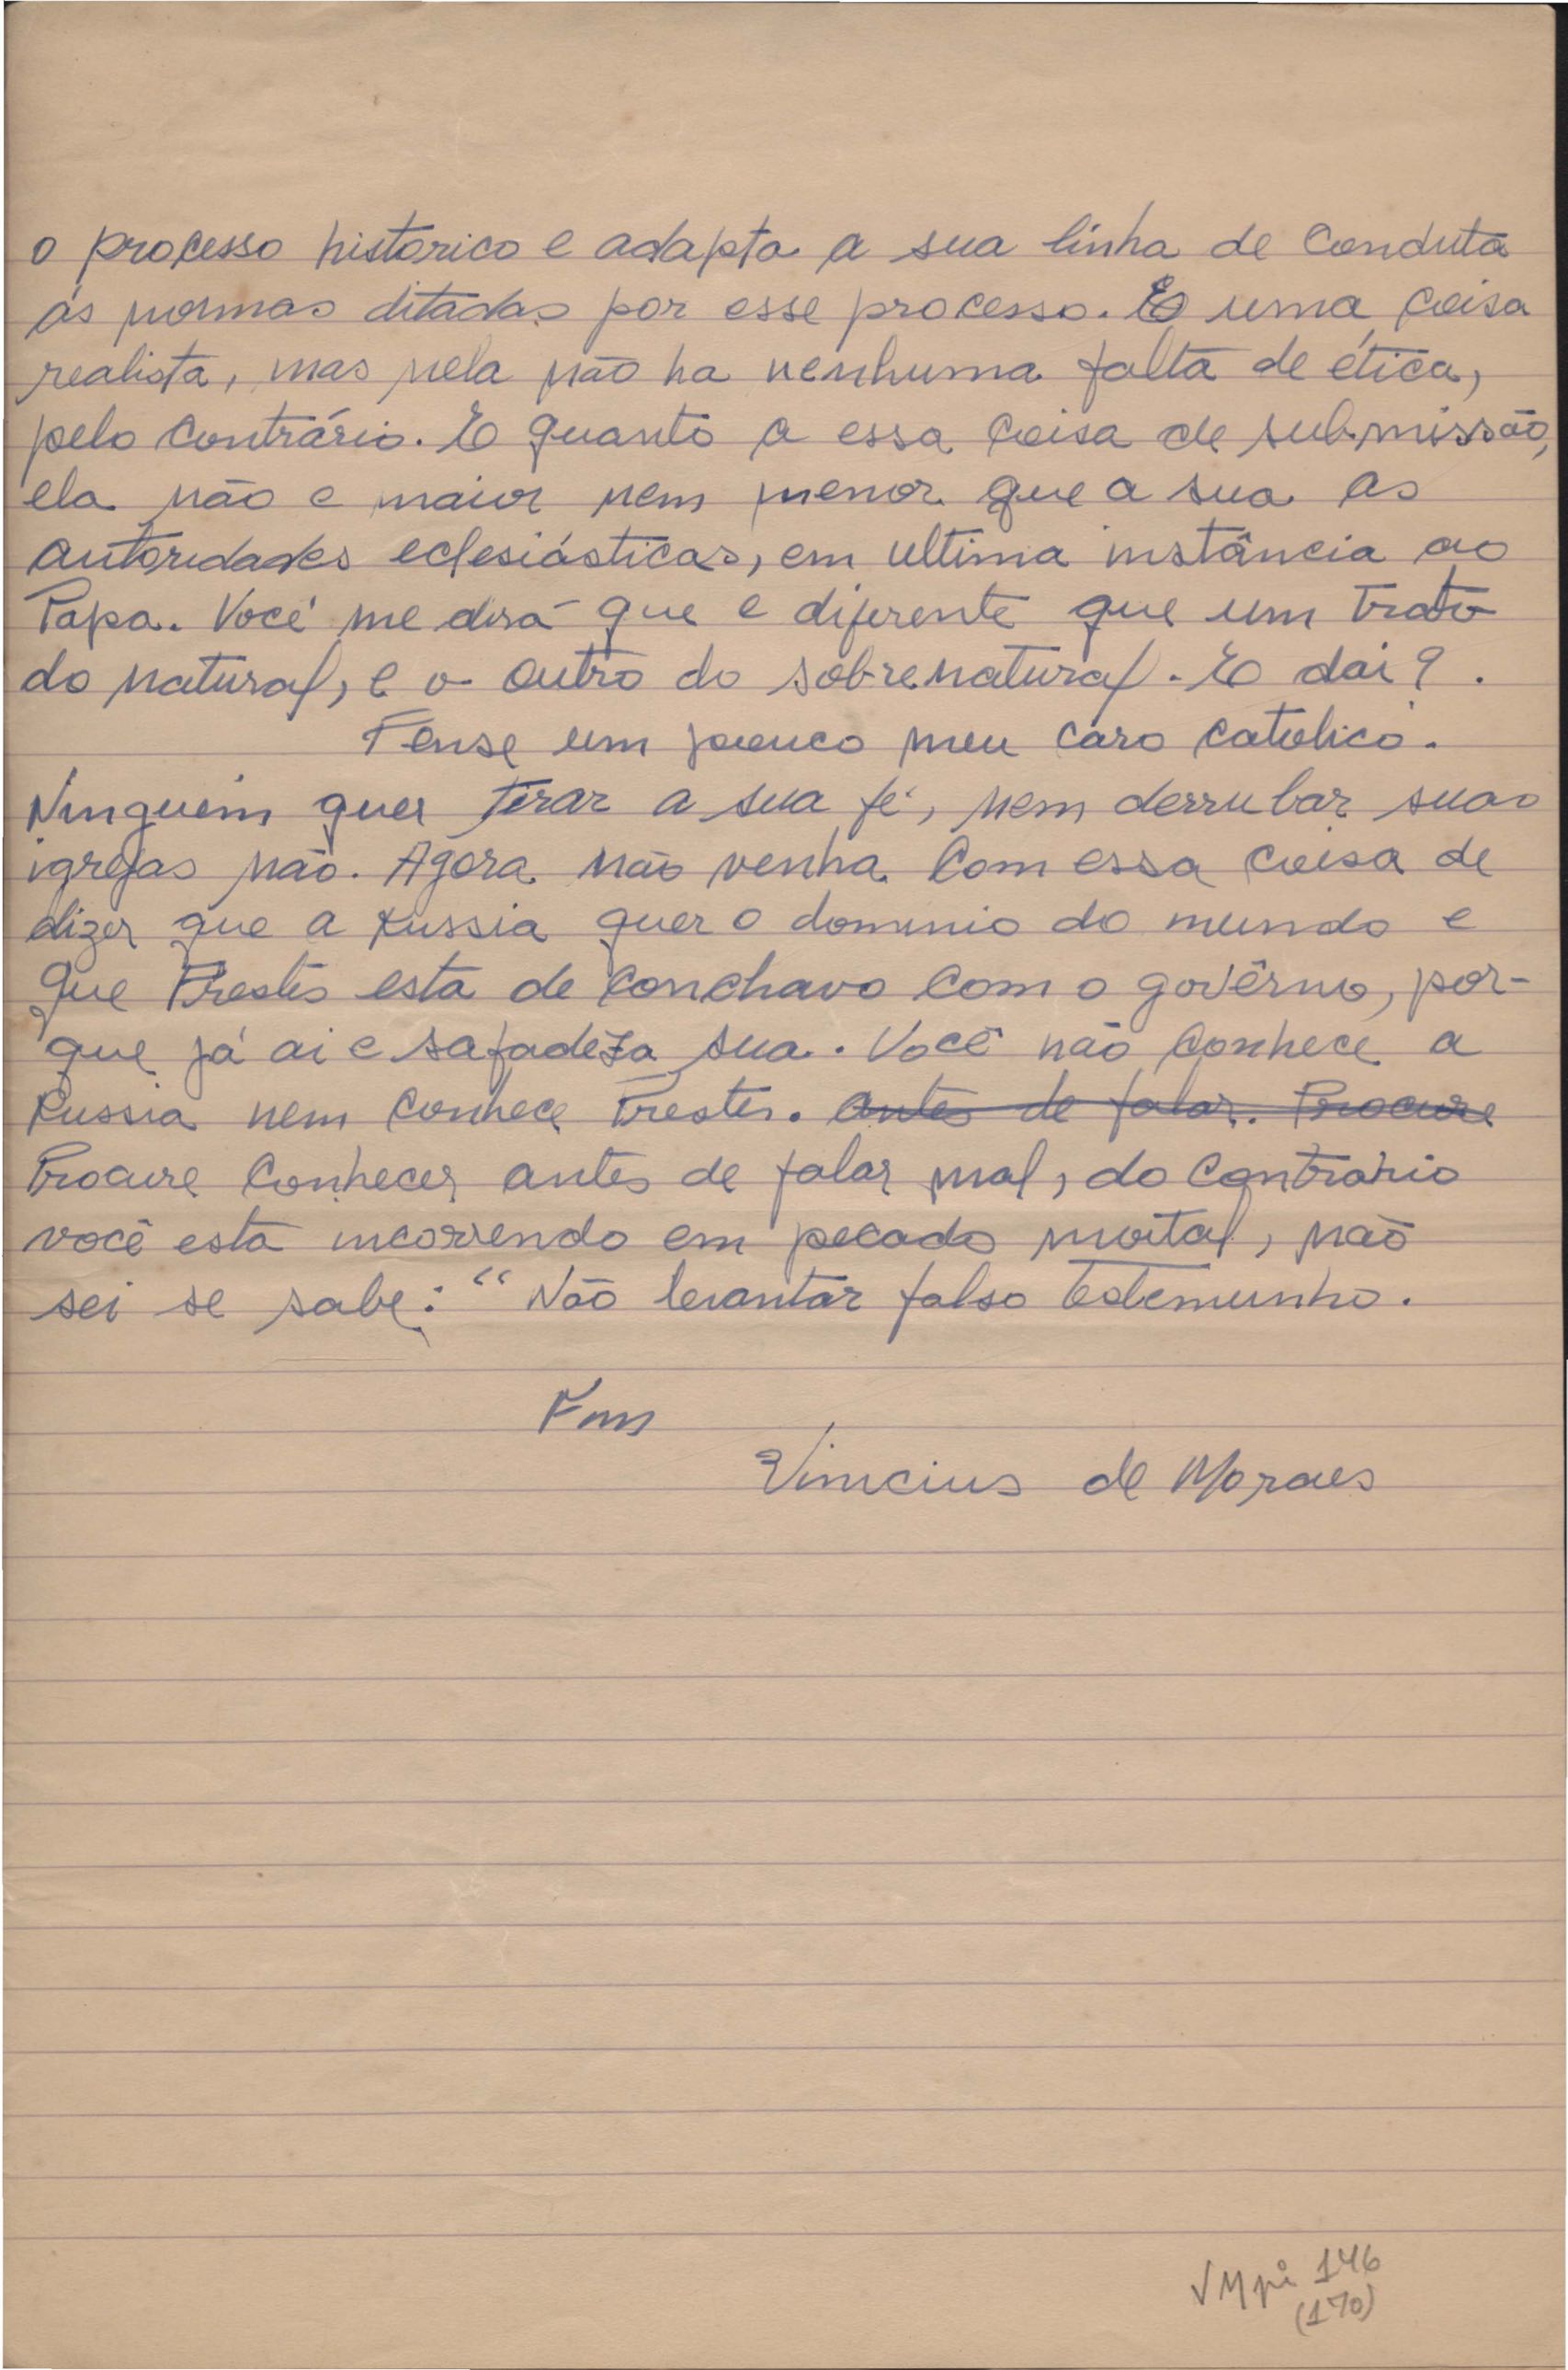 o processo historico e adapta a sua linha de conduta
ás normas ditadas por esse processo. E uma coisa
realista, mas nela não ha nenhuma falta de ética,
pelo contrário. E quanto a essa coisa de submissão,
ela não e maior nem menor que a sua as
autoridades eclesiásticas, em ultima instância ao
Papa. Você me dirá que e diferente que um trato
do natural, e o outro do sobrenatural. E dai?.
Pense um pouco meu caro catolico.
Ninguem quer tirar a sua fé, nem derrubar suas
igrejas não. Agora não venha com essa coisa de
dizer que a Russia quer o dominio do mundo e
que Prestes esta de conchavo com o govêrno, por-
que já ai e safadeza sua. Você não conhece a
Russia nem conhece Prestes. antes de falar. Procure
Procure conhecer antes de falar mal, do contrário
você está incorrendo em pecado mortal, não
sei se sabe: “Não levantar falso testemunho.
Fim
Vinicius de Moraes
VMpi 146
(170)